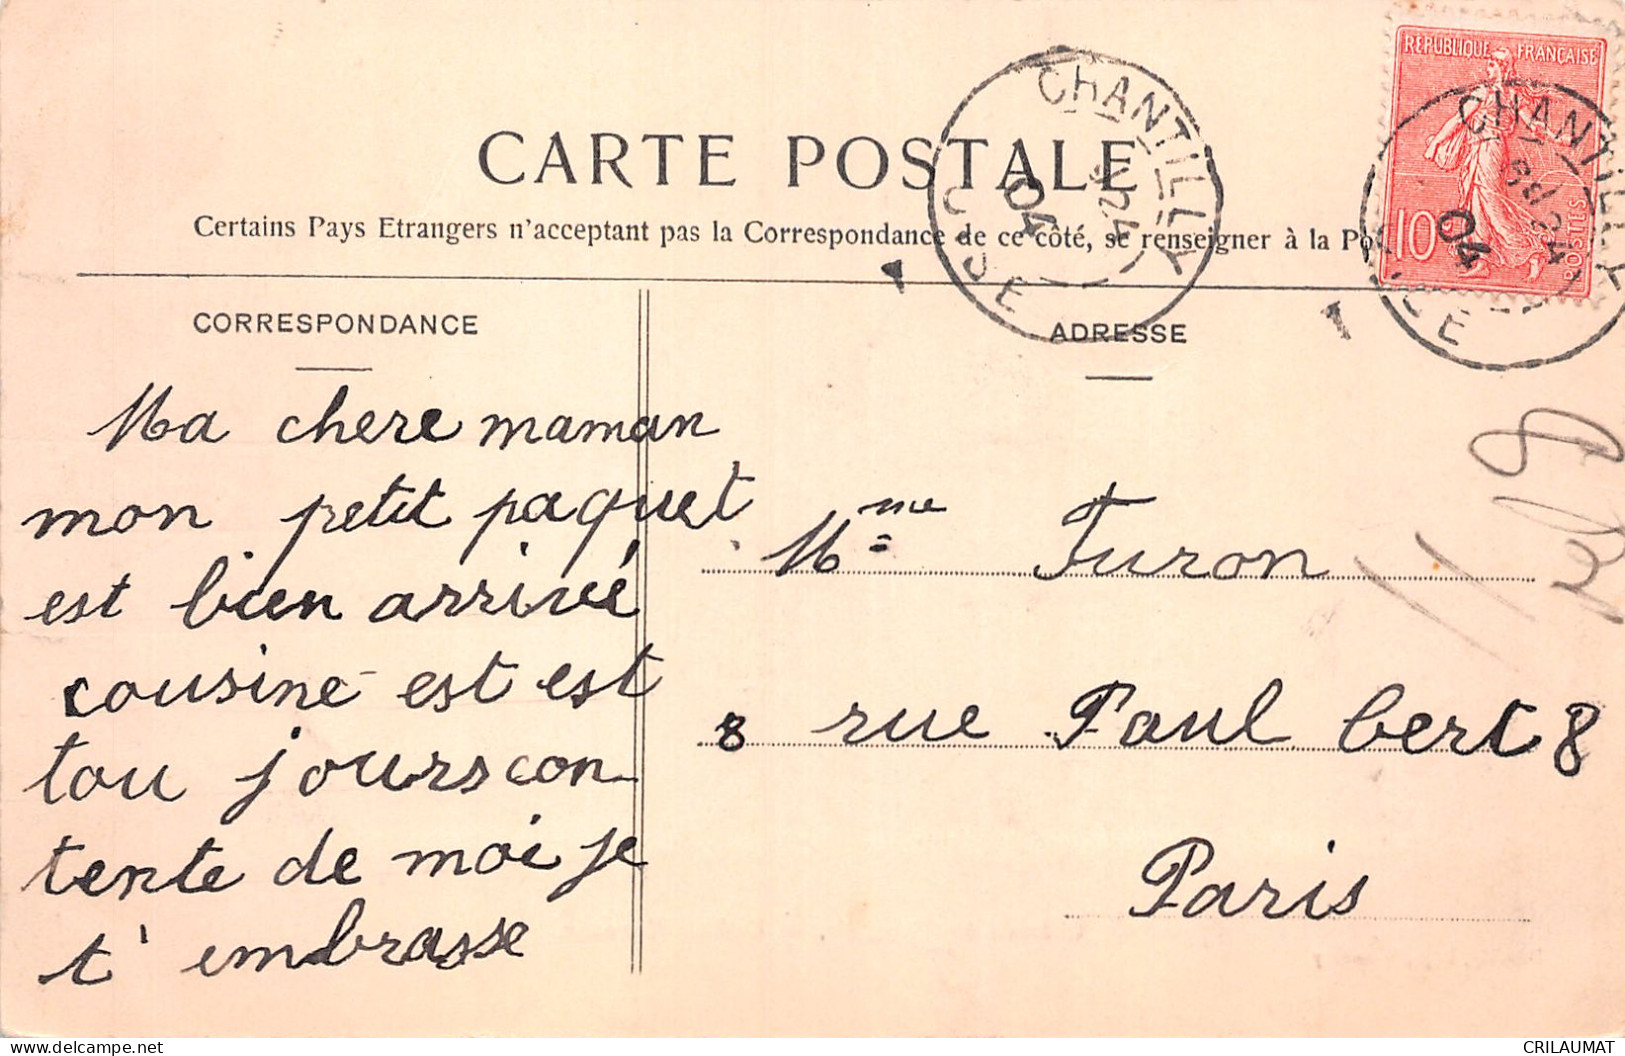 CARTE POSTALE
Certains Pays Etrangers n'acceptant pas la Correspondance de ce côté, se renseigner à la
CORRESPONDANCE
Ma chere maman
mon petit paquet
est bien arrivé
cousine est est
tou jours con
tente de moi je
t' embrasse
ADRESSE
Mme Turon
8 rue Paul bert 8
Paris
REPUBLIQUE FRANÇAISE
10
POSTES
CHANTILLY
04
OISE
CHANTILLY
04
CRILAUMAT